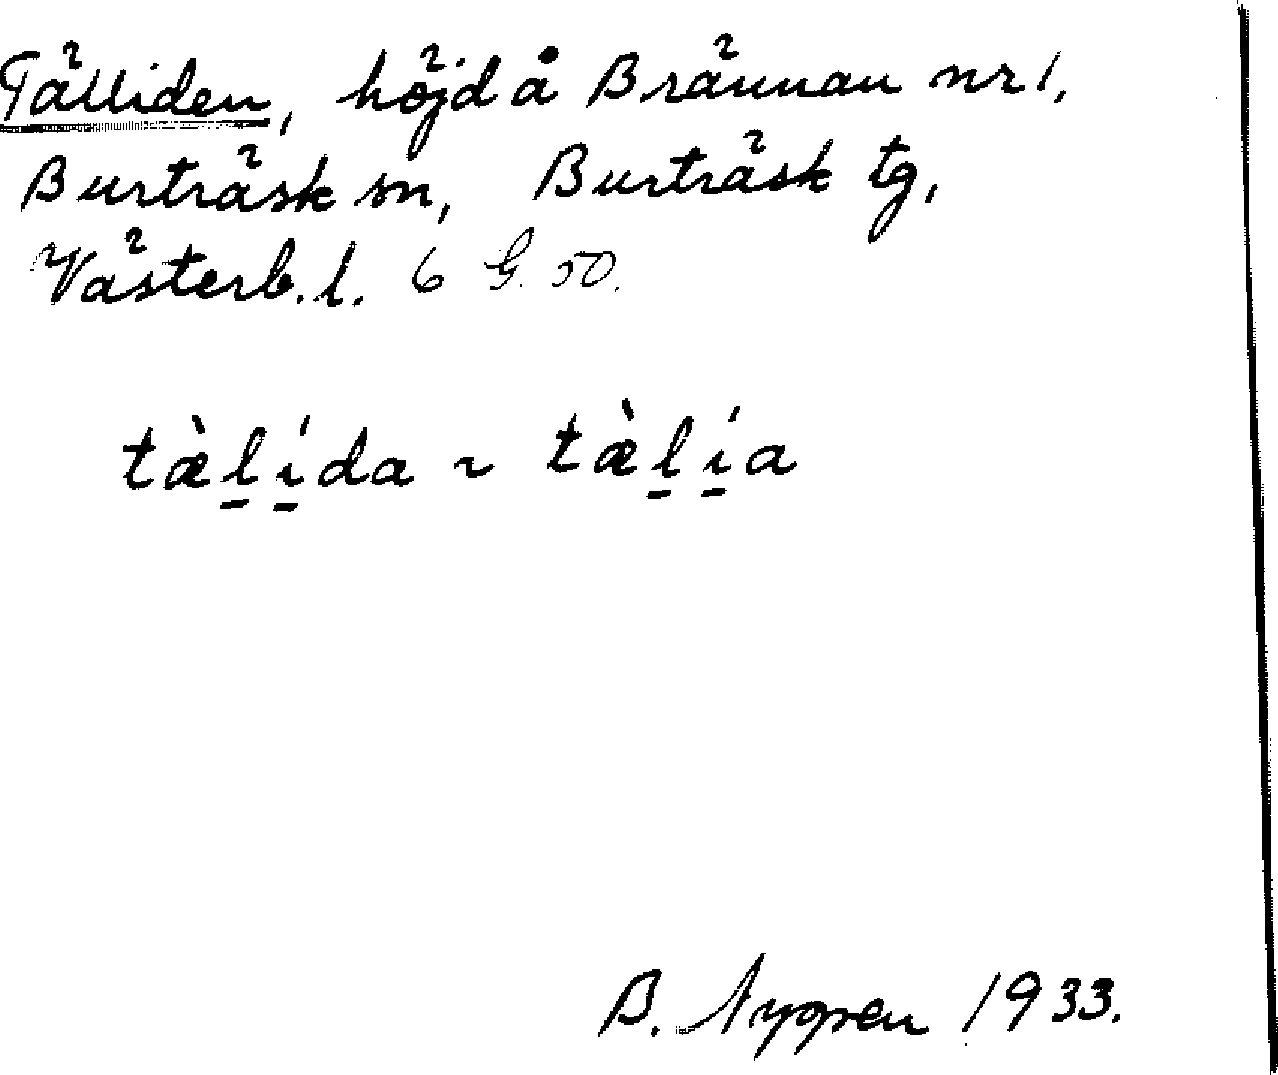 Tälliden, höjd å Brännan nr 1,
Burträsk sn, Burträsk tg,
Västerb. l. 6 G. 50.
tæ̀l̠í̠da ~ tæ̀l̠í̠a
B. Nygren 1933.